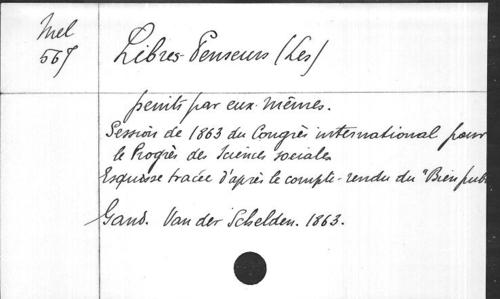 Mel
567
Libres-Penseurs (Les)
peints par eux-mêmes.
Session de 1863 du Congrès international pour
le Progrès des Sciences sociales
Esquisse tracée d'après le compte-rendu du "Bien pub
Gand. Van der Schelden. 1863.